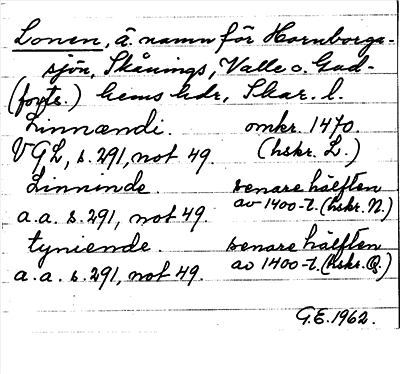 Lonen, ä. namn för Hornborga-
sjön, Skånings, Valle o. Gud-
(forts.) hems hdr, Skar. l.
Linnændi. omkr. 1470.
VGL, s. 291, not 49. (hskr. L.)
Linninde. senare hälften
a.a. s. 291, not 49. av 1400-t. (hskr. N.)
tyniende. senare hälften
a.a. s. 291, not 49. av 1400-t. (hskr. Q.)
G.E. 1962.